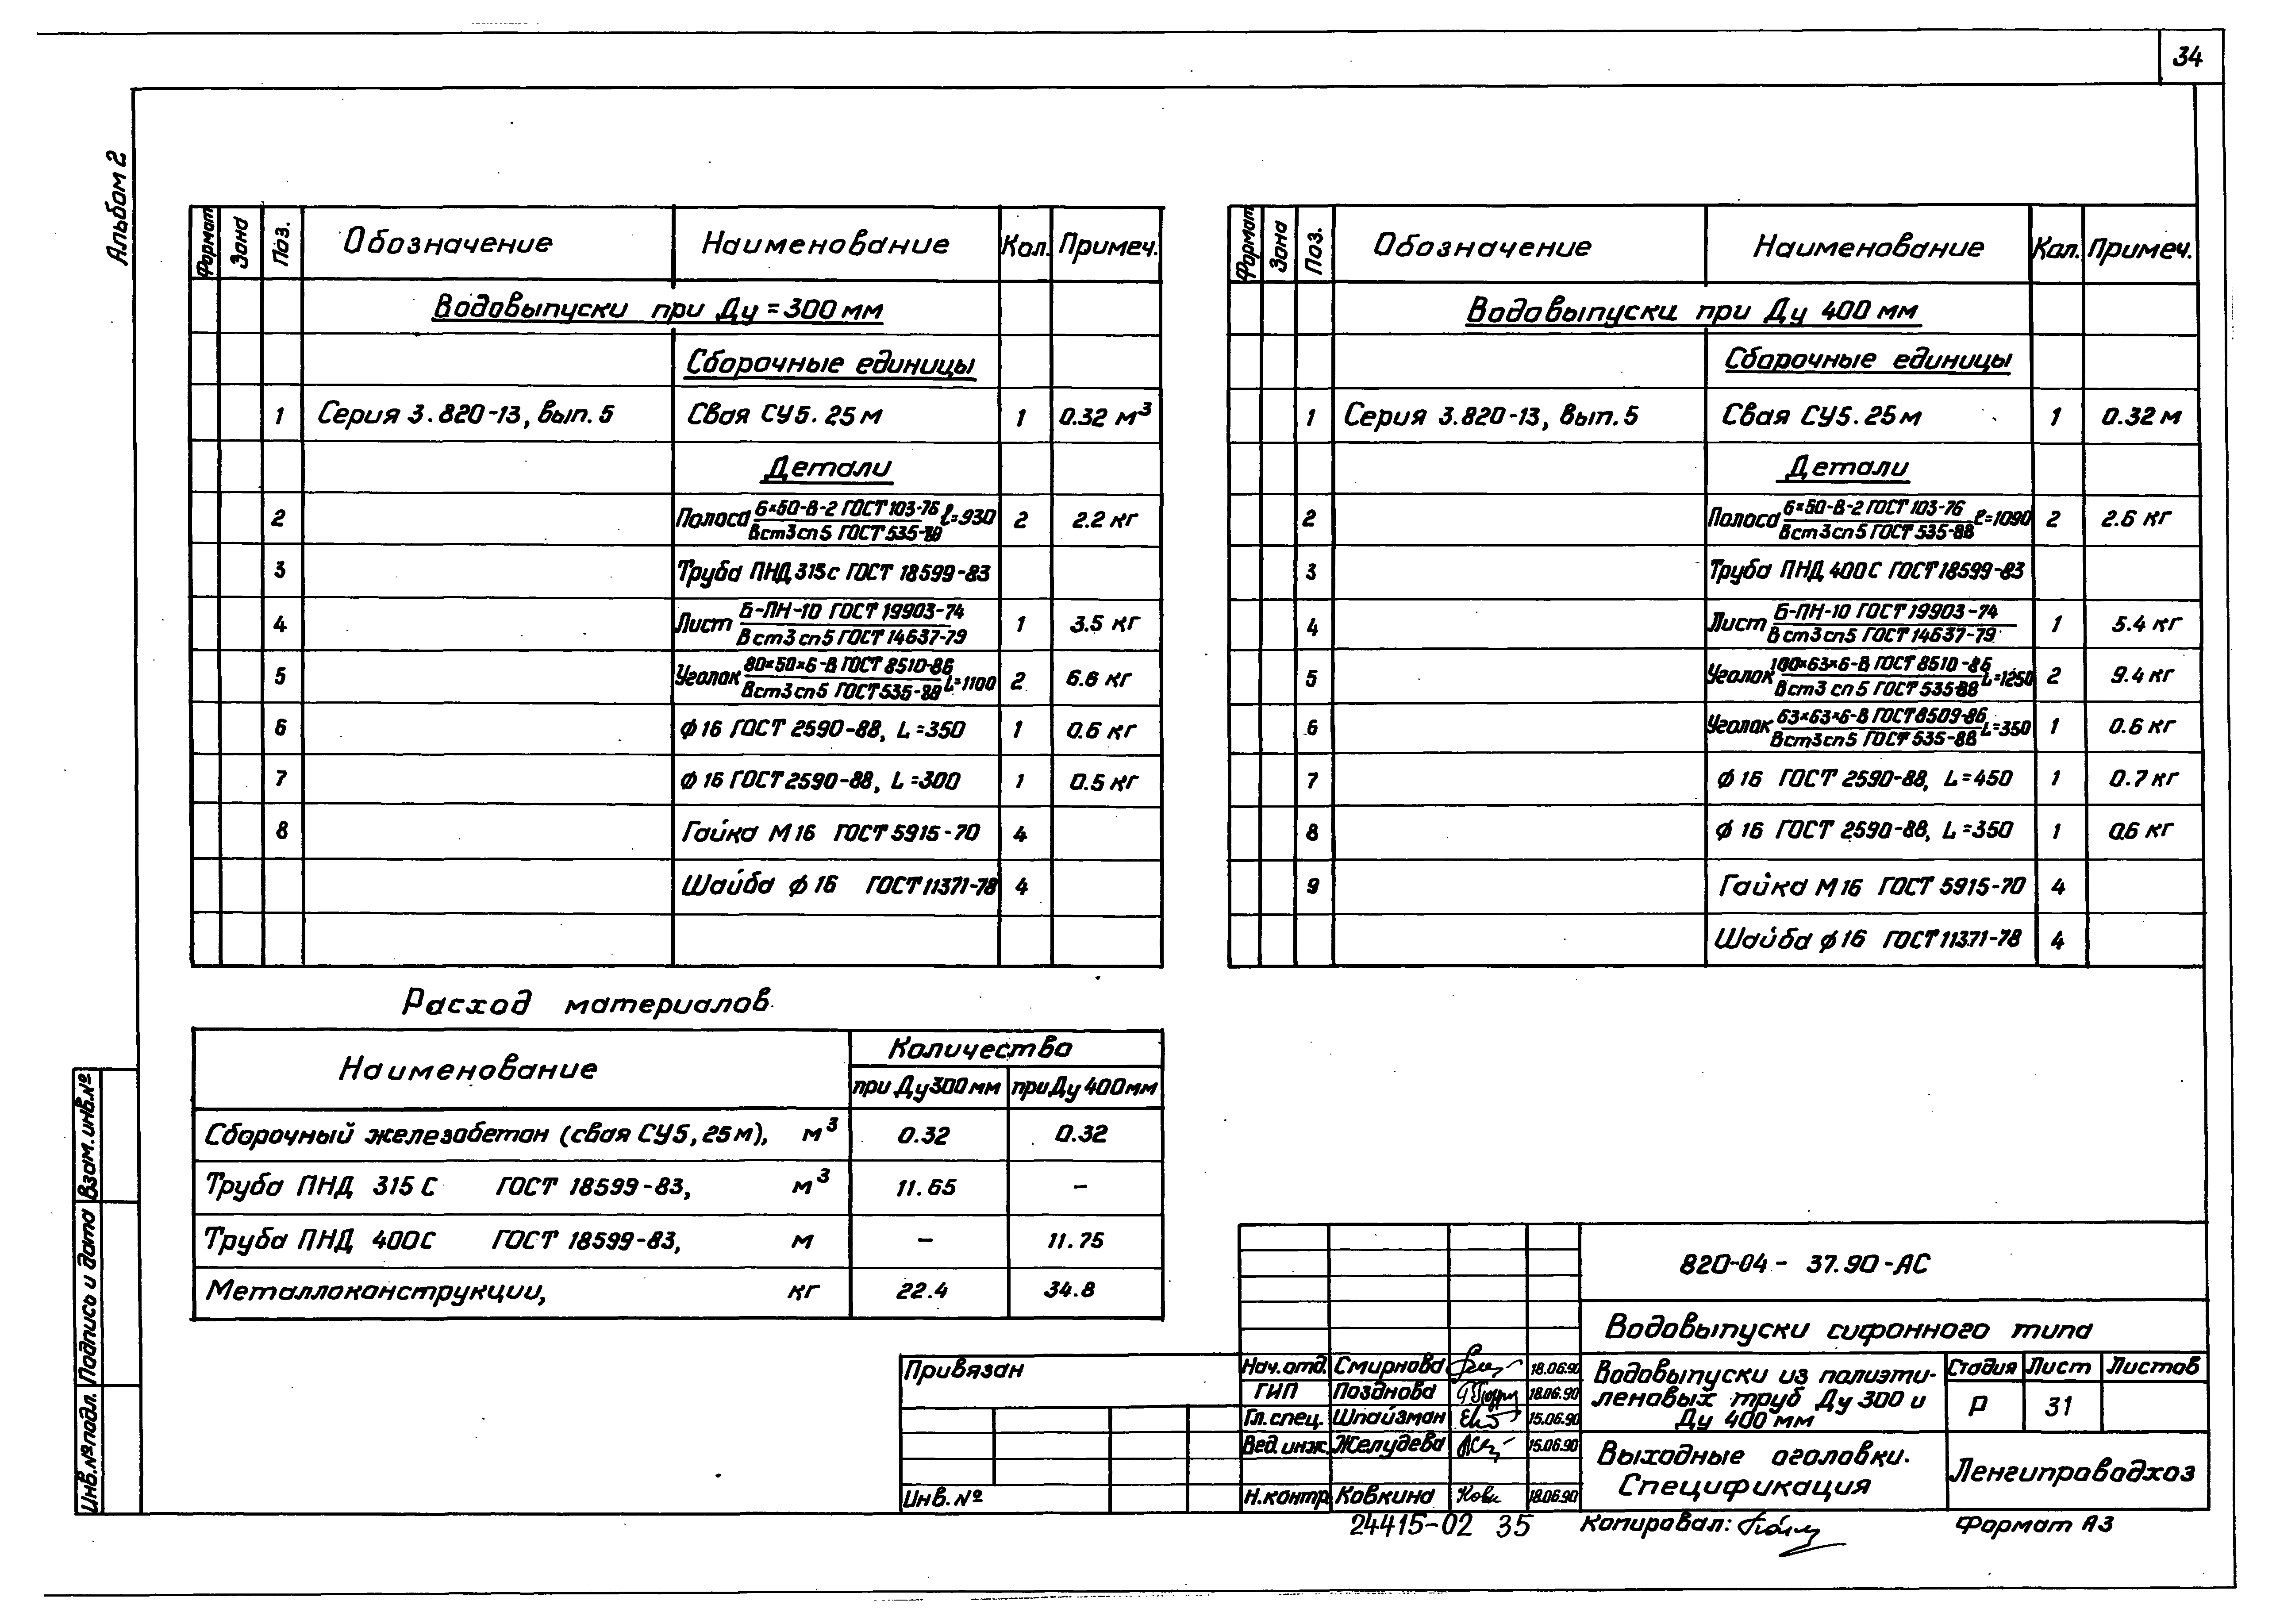 34
Альбом 2
Формат Зона Поз. Обозначение Наименование Кол. Примеч.
Водовыпуски при Ду = 300 мм
Сборочные единицы
1 Серия 3.820-13, вып. 5 Свая СУ5. 25 м 1 0.32 м³
Детали
2 Полоса 6×50-В-2 ГОСТ 103-76 / Вст3сп5 ГОСТ 535-88 ℓ=930 2 2.2 кг
3 Труба ПНД 315с ГОСТ 18599-83
4 Лист Б-ПН-10 ГОСТ 19903-74 / Вст3сп5 ГОСТ 14637-79 1 3.5 кг
5 Уголок 80×50×6-В ГОСТ 8510-86 / Вст3сп5 ГОСТ 535-88 L=1100 2 6.6 кг
6 ф 16 ГОСТ 2590-88, L=350 1 0.6 кг
7 ф 16 ГОСТ 2590-88, L=300 1 0.5 кг
8 Гайка М16 ГОСТ 5915-70 4
Шайба ф 16 ГОСТ 11371-78 4
Формат Зона Поз. Обозначение Наименование Кол. Примеч.
Водовыпуски при Ду 400 мм
Сборочные единицы
1 Серия 3.820-13, вып. 5 Свая СУ5. 25 м 1 0.32 м
Детали
2 Полоса 6×50-В-2 ГОСТ 103-76 / Вст3сп5 ГОСТ 535-88 ℓ=1090 2 2.6 кг
3 Труба ПНД 400С ГОСТ 18599-83
4 Лист Б-ПН-10 ГОСТ 19903-74 / Вст3сп5 ГОСТ 14637-79 1 5.4 кг
5 Уголок 100×63×6-В ГОСТ 8510-86 / Вст3сп5 ГОСТ 535-88 L=1250 2 9.4 кг
6 Уголок 63×63×6-В ГОСТ 8509-86 / Вст3сп5 ГОСТ 535-88 L=350 1 0.6 кг
7 ф 16 ГОСТ 2590-88, L=450 1 0.7 кг
8 ф 16 ГОСТ 2590-88, L=350 1 0.6 кг
9 Гайка М16 ГОСТ 5915-70 4
Шайба ф 16 ГОСТ 11371-78 4
Расход материалов
Наименование Количество
при Ду 300 мм при Ду 400 мм
Сборочный железобетон (свая СУ5, 25 м), м³ 0.32 0.32
Труба ПНД 315 С ГОСТ 18599-83, м³ 11.65 –
Труба ПНД 400С ГОСТ 18599-83, м – 11.75
Металлоконструкции, кг 22.4 34.8
Взам. инв. №
Подпись и дата
Инв. № подл.
Привязан
Инв. №
820-04- 37.90-АС
Водовыпуски сифонного типа
Нач. отд. Смирнова 18.06.90
ГИП Позднова 18.06.90
Гл. спец. Шпайзман 15.06.90
Вед. инж. Желудева 15.06.90
Н. контр. Ковкина 18.06.90
Водовыпуски из полиэти-
леновых труб Ду 300 и
Ду 400 мм
Стадия Лист Листов
Р 31
Выходные оголовки.
Спецификация
Ленгипроводхоз
24415-02 35 Копировал: Формат А3